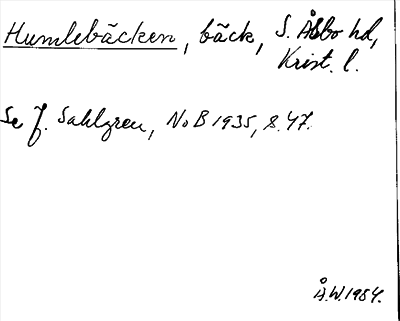 Humlebäcken, bäck, S. Åsbo hd,
Krist. l.
Se J. Sahlgren, NoB 1935, s. 47.
Å.W. 1984.